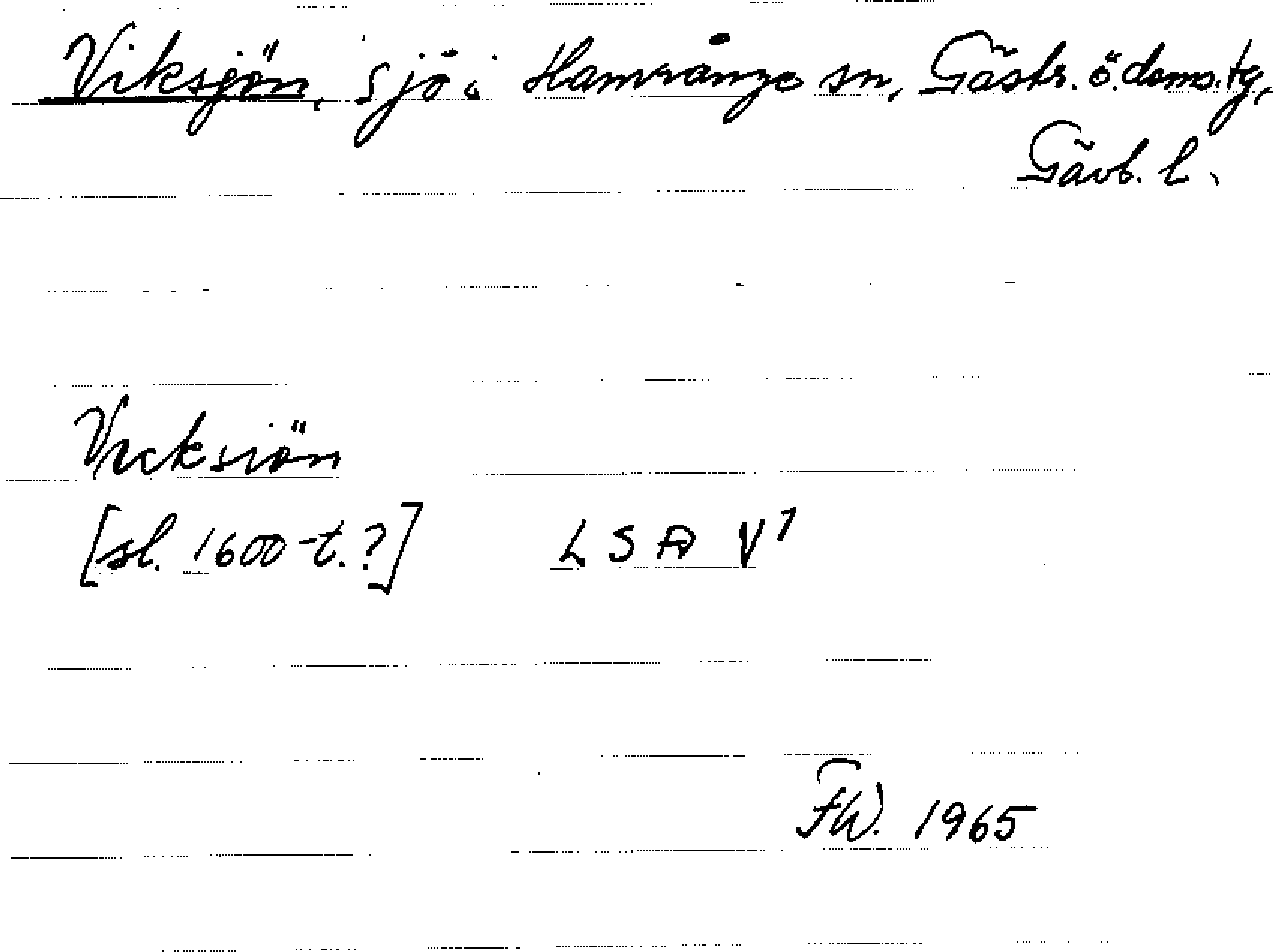 Viksjön, sjö i Hamrånge sn, Gästr. ö. doms.tg,
Gävb. l.
Vicksiön
[sl. 1600-t.?] LSA V¹
FW. 1965